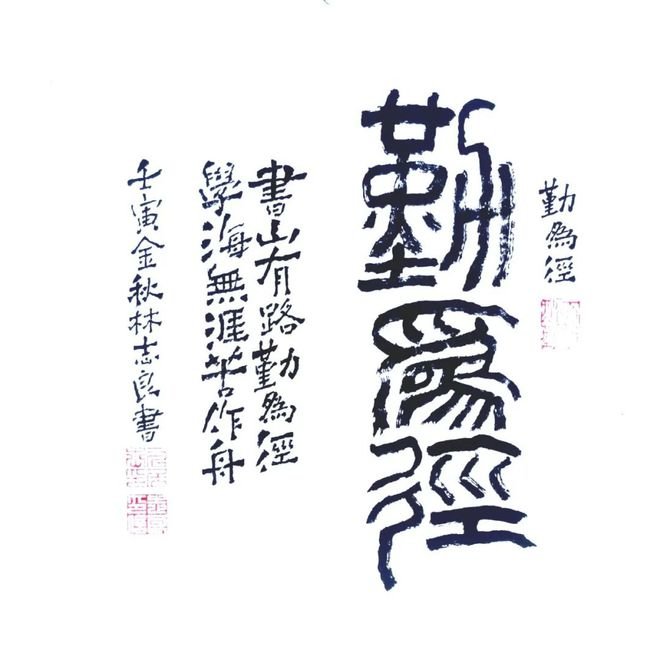 勤為徑
勤為徑
書山有路勤為徑
學海無涯苦作舟
壬寅金秋林志良書